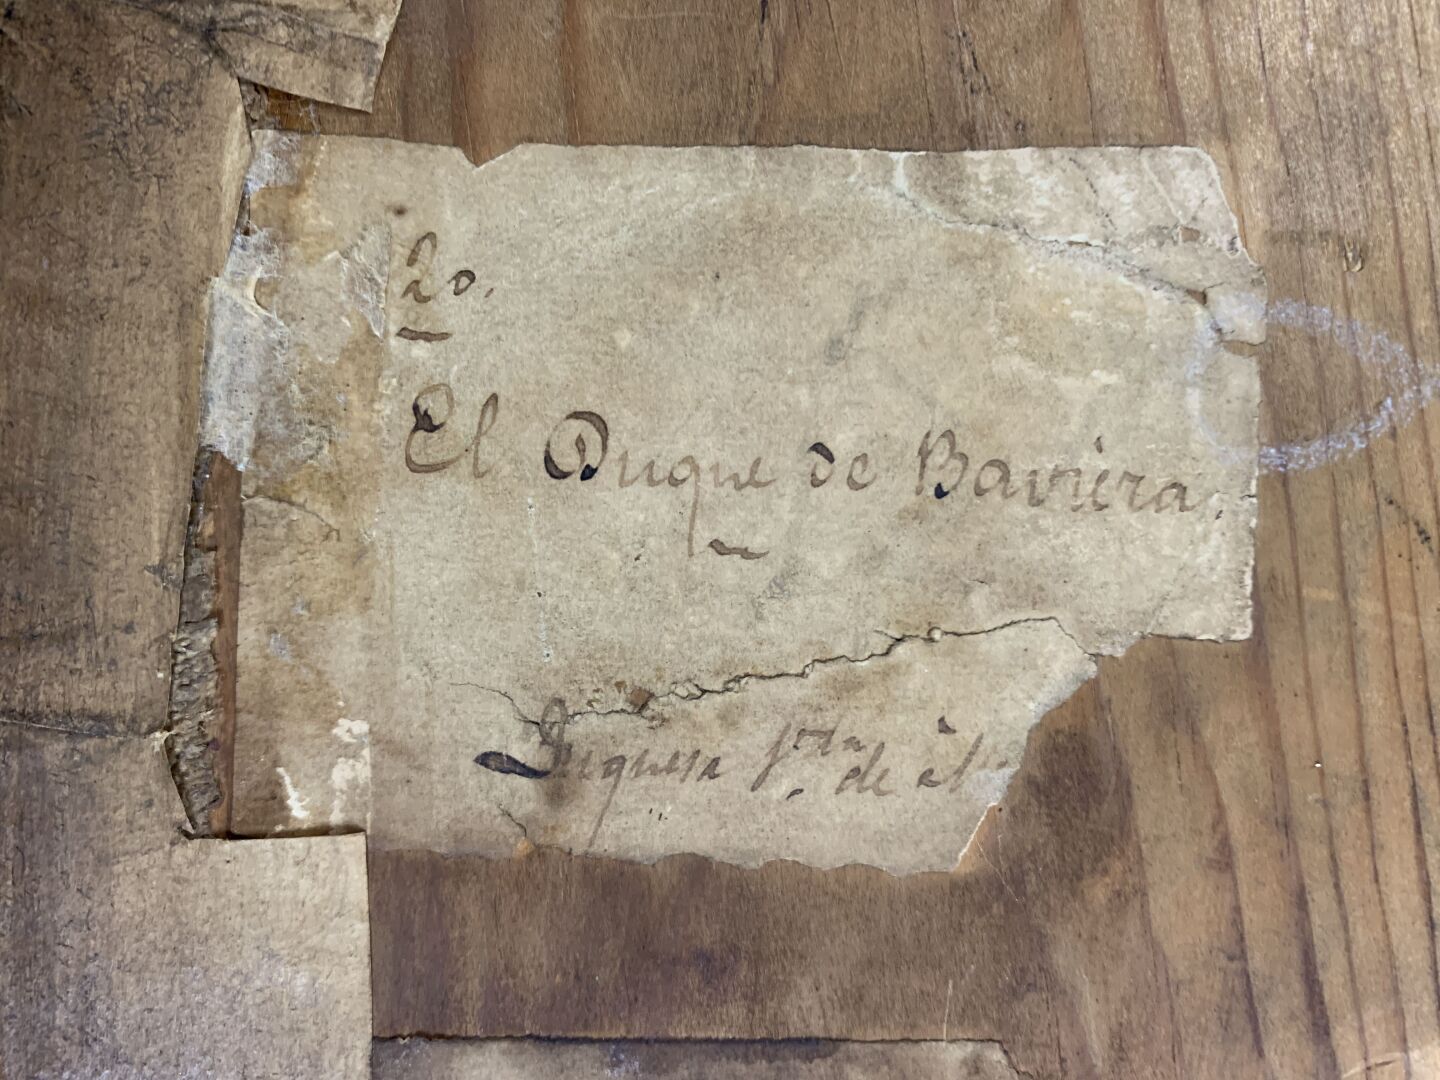 20.
El Duque de Baviera.
Duquesa de